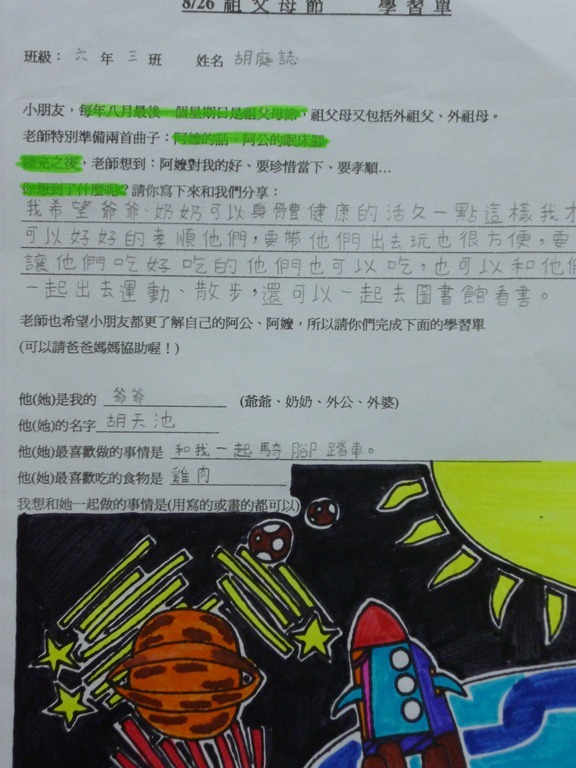 8/26 祖父母節 學習單
班級： 六 年 三 班 姓名 胡庭誌
小朋友，每年八月最後一個星期日是祖父母節，祖父母又包括外祖父、外祖母。
老師特別準備兩首曲子：阿嬤的話、阿公的眠床腳
聽完之後，老師想到：阿嬤對我的好、要珍惜當下、要孝順...
你想到了什麼呢？請你寫下來和我們分享：
我希望爺爺、奶奶可以身體健康的活久一點這樣我才
可以好好的孝順他們，要帶他們出去玩也很方便，要
讓他們吃好吃的他們也可以吃，也可以和他們
一起出去運動、散步，還可以一起去圖書館看書。
老師也希望小朋友都更了解自己的阿公、阿嬤，所以請你們完成下面的學習單
(可以請爸爸媽媽協助喔！)
他(她)是我的 爺爺 (爺爺、奶奶、外公、外婆)
他(她)的名字 胡天池
他(她)最喜歡做的事情是 和我一起騎腳踏車。
他(她)最喜歡吃的食物是 雞肉
我想和她一起做的事情是(用寫的或畫的都可以)